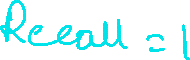 Recall = 1